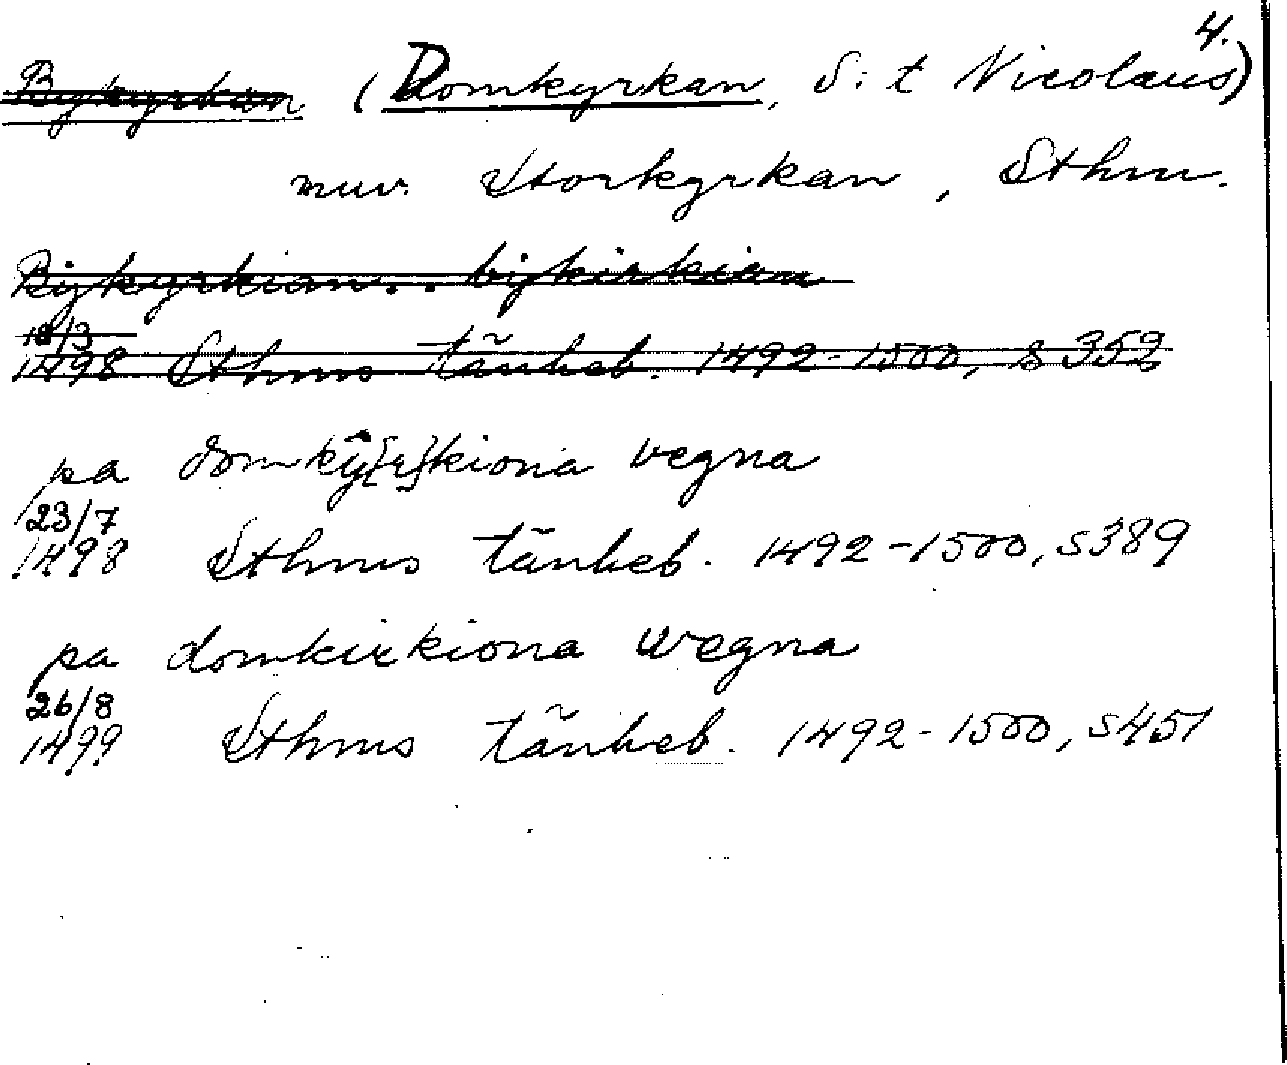 4.
Bykyrkan (Domkyrkan, S:t Nicolaus)
nuv. Storkyrkan, Sthm.
Bykyrkian.. bykirkian
18/3
1498 Sthms tänkeb. 1492-1500, s 352
pa domkÿ{r}kiona vegna
23/7
1498 Sthms tänkeb. 1492-1500, s389
pa domkirkiona wegna
26/8
1499 Sthms tänkeb. 1492-1500, s451